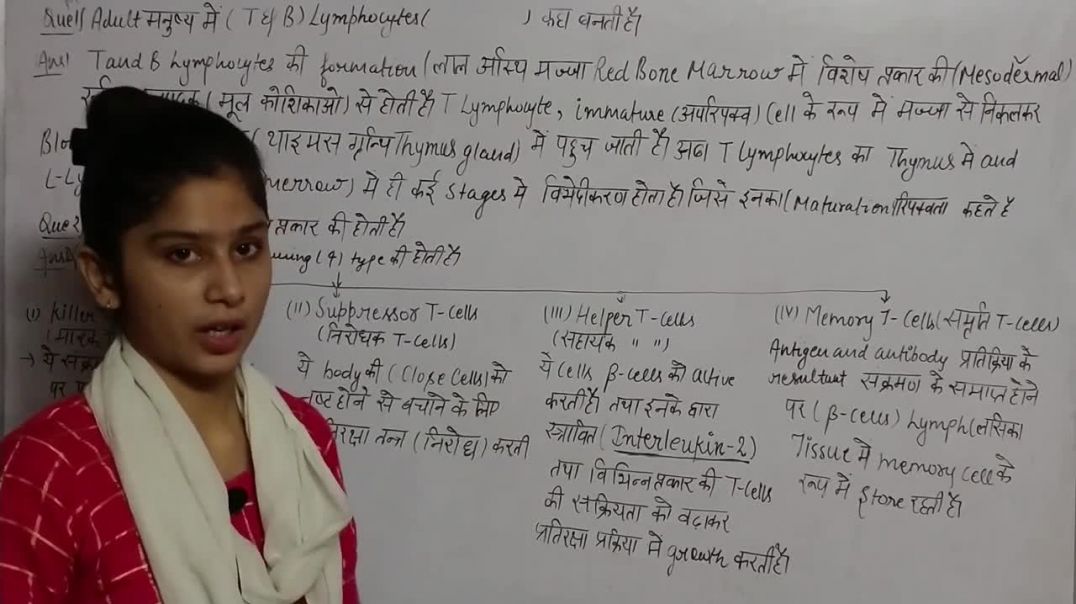 Que1) Adult मनुष्य में ( T & B ) Lymphocytes ( ) कहा बनती है।
Ans) T and B Lymphocytes की formation (लाल अस्थि मज्जा Red Bone Marrow में विशेष प्रकार की (Mesodermal)
( मूल कोशिकाओ ) से होती है। T Lymphocyte, immature (अपरिपक्व) Cell के रूप में मज्जा से निकलकर
Blo ( थाइमस ग्रन्थि Thymus gland) में पहुच जाती है। T Lymphocytes का Thymus में and
L-Ly merrow) मे ही कई Stages मे विभेदीकरण होता है। जिसे इनका (Maturation परिपक्वता कहते है
Que2 प्रकार की होती है।
Ans) wing (4) type की होती है।
(i) Killer
(मारक
→ ये सक्र
पर
(ii) Suppressor T-cells
(निरोधक T-cells)
ये body की (Close Cells) को
नष्ट होने से बचाने के लिए
तन्त्र (निरोध) करती
(iii) Helper T-cells
(सहायक " ")
ये Cells β-cells को active
करती है। तथा इनके द्वारा
स्त्रावित (Interleukin-2)
तथा विभिन्न प्रकार की T-cells
की सक्रियता को बढ़ाकर
प्रतिरक्षा प्रक्रिया मे growth करती है।
(iv) Memory T-Cells (स्मृति T-cells)
Antigen and antibody प्रतिक्रिया के
resultant सक्रमण के समाप्त होने
पर (β-cells) Lymph (लसिका
Tissue मे memory cell के
रूप में Store रहती है।